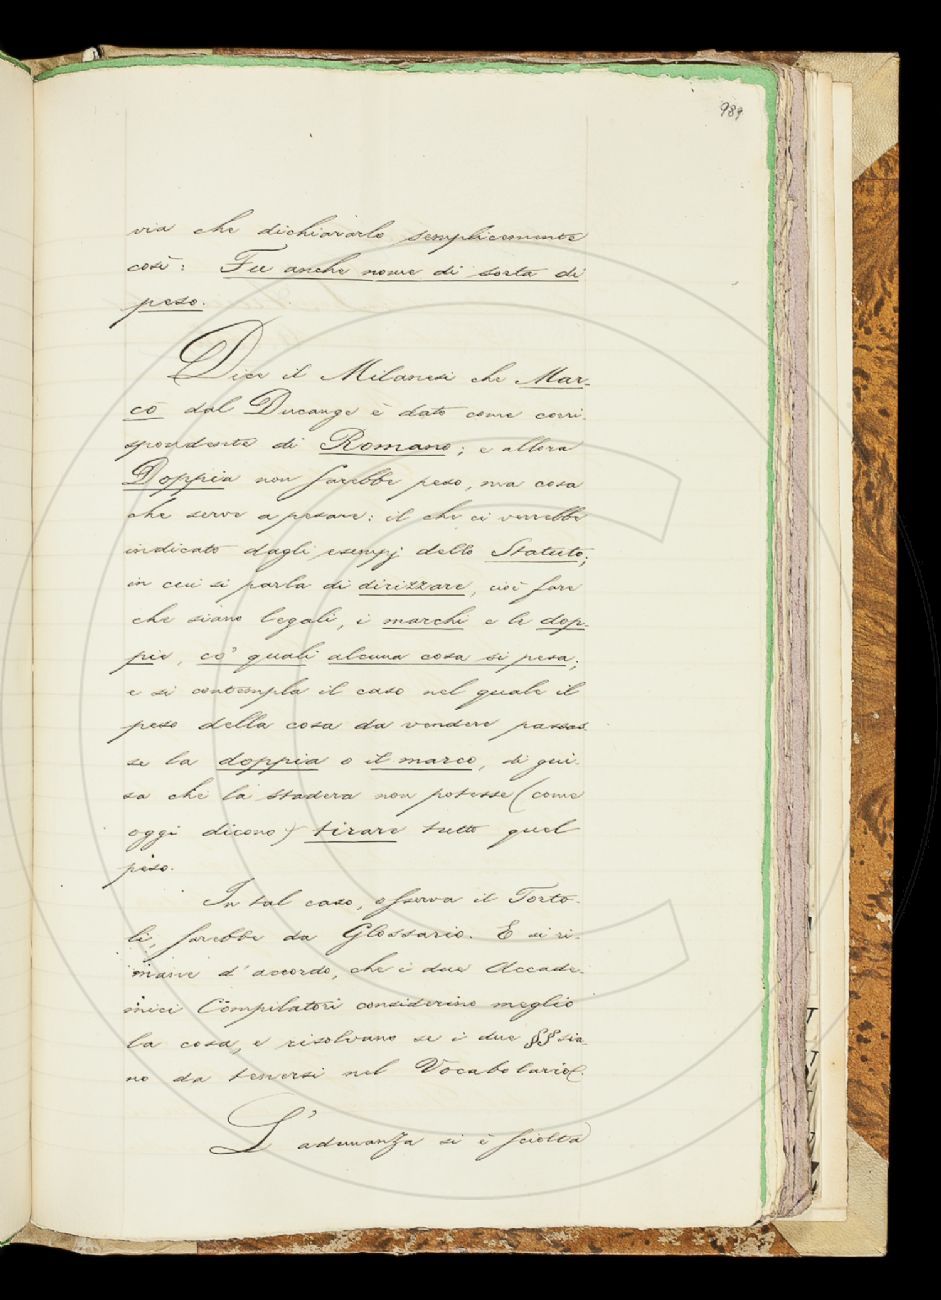 989
via che dichiararlo semplicemente
così: Fu anche nome di sorta di
peso.
Dice il Milanesi che Mar-
co dal Ducange è dato come corri-
spondente di Romano; e allora
Doppia non sarebbe peso, ma cosa
che serve a pesare: il che ci verrebbe
indicato dagli esempj dello Statuto,
in cui si parla di dirizzare, cioè fare
che siano legali, i marchi e le dop-
pie, co' quali alcuna cosa si pesa;
e si contempla il caso nel quale il
peso della cosa da vendere passas-
se la doppia o il marco, di gui-
sa che la stadera non potesse (come
oggi dicono) tirare tutto quel
peso.
In tal caso, osserva il Torto-
li, sarebbe da Glossario. E si ri-
mane d'accordo, che i due Accade-
mici Compilatori considerino meglio
la cosa, e risolvano se i due §§ sia-
no da tenersi nel Vocabolario
L'adunanza si è sciolta